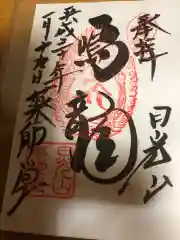 奉拝
日光山
鳴龍
平成三十年
一月十九日
薬師堂